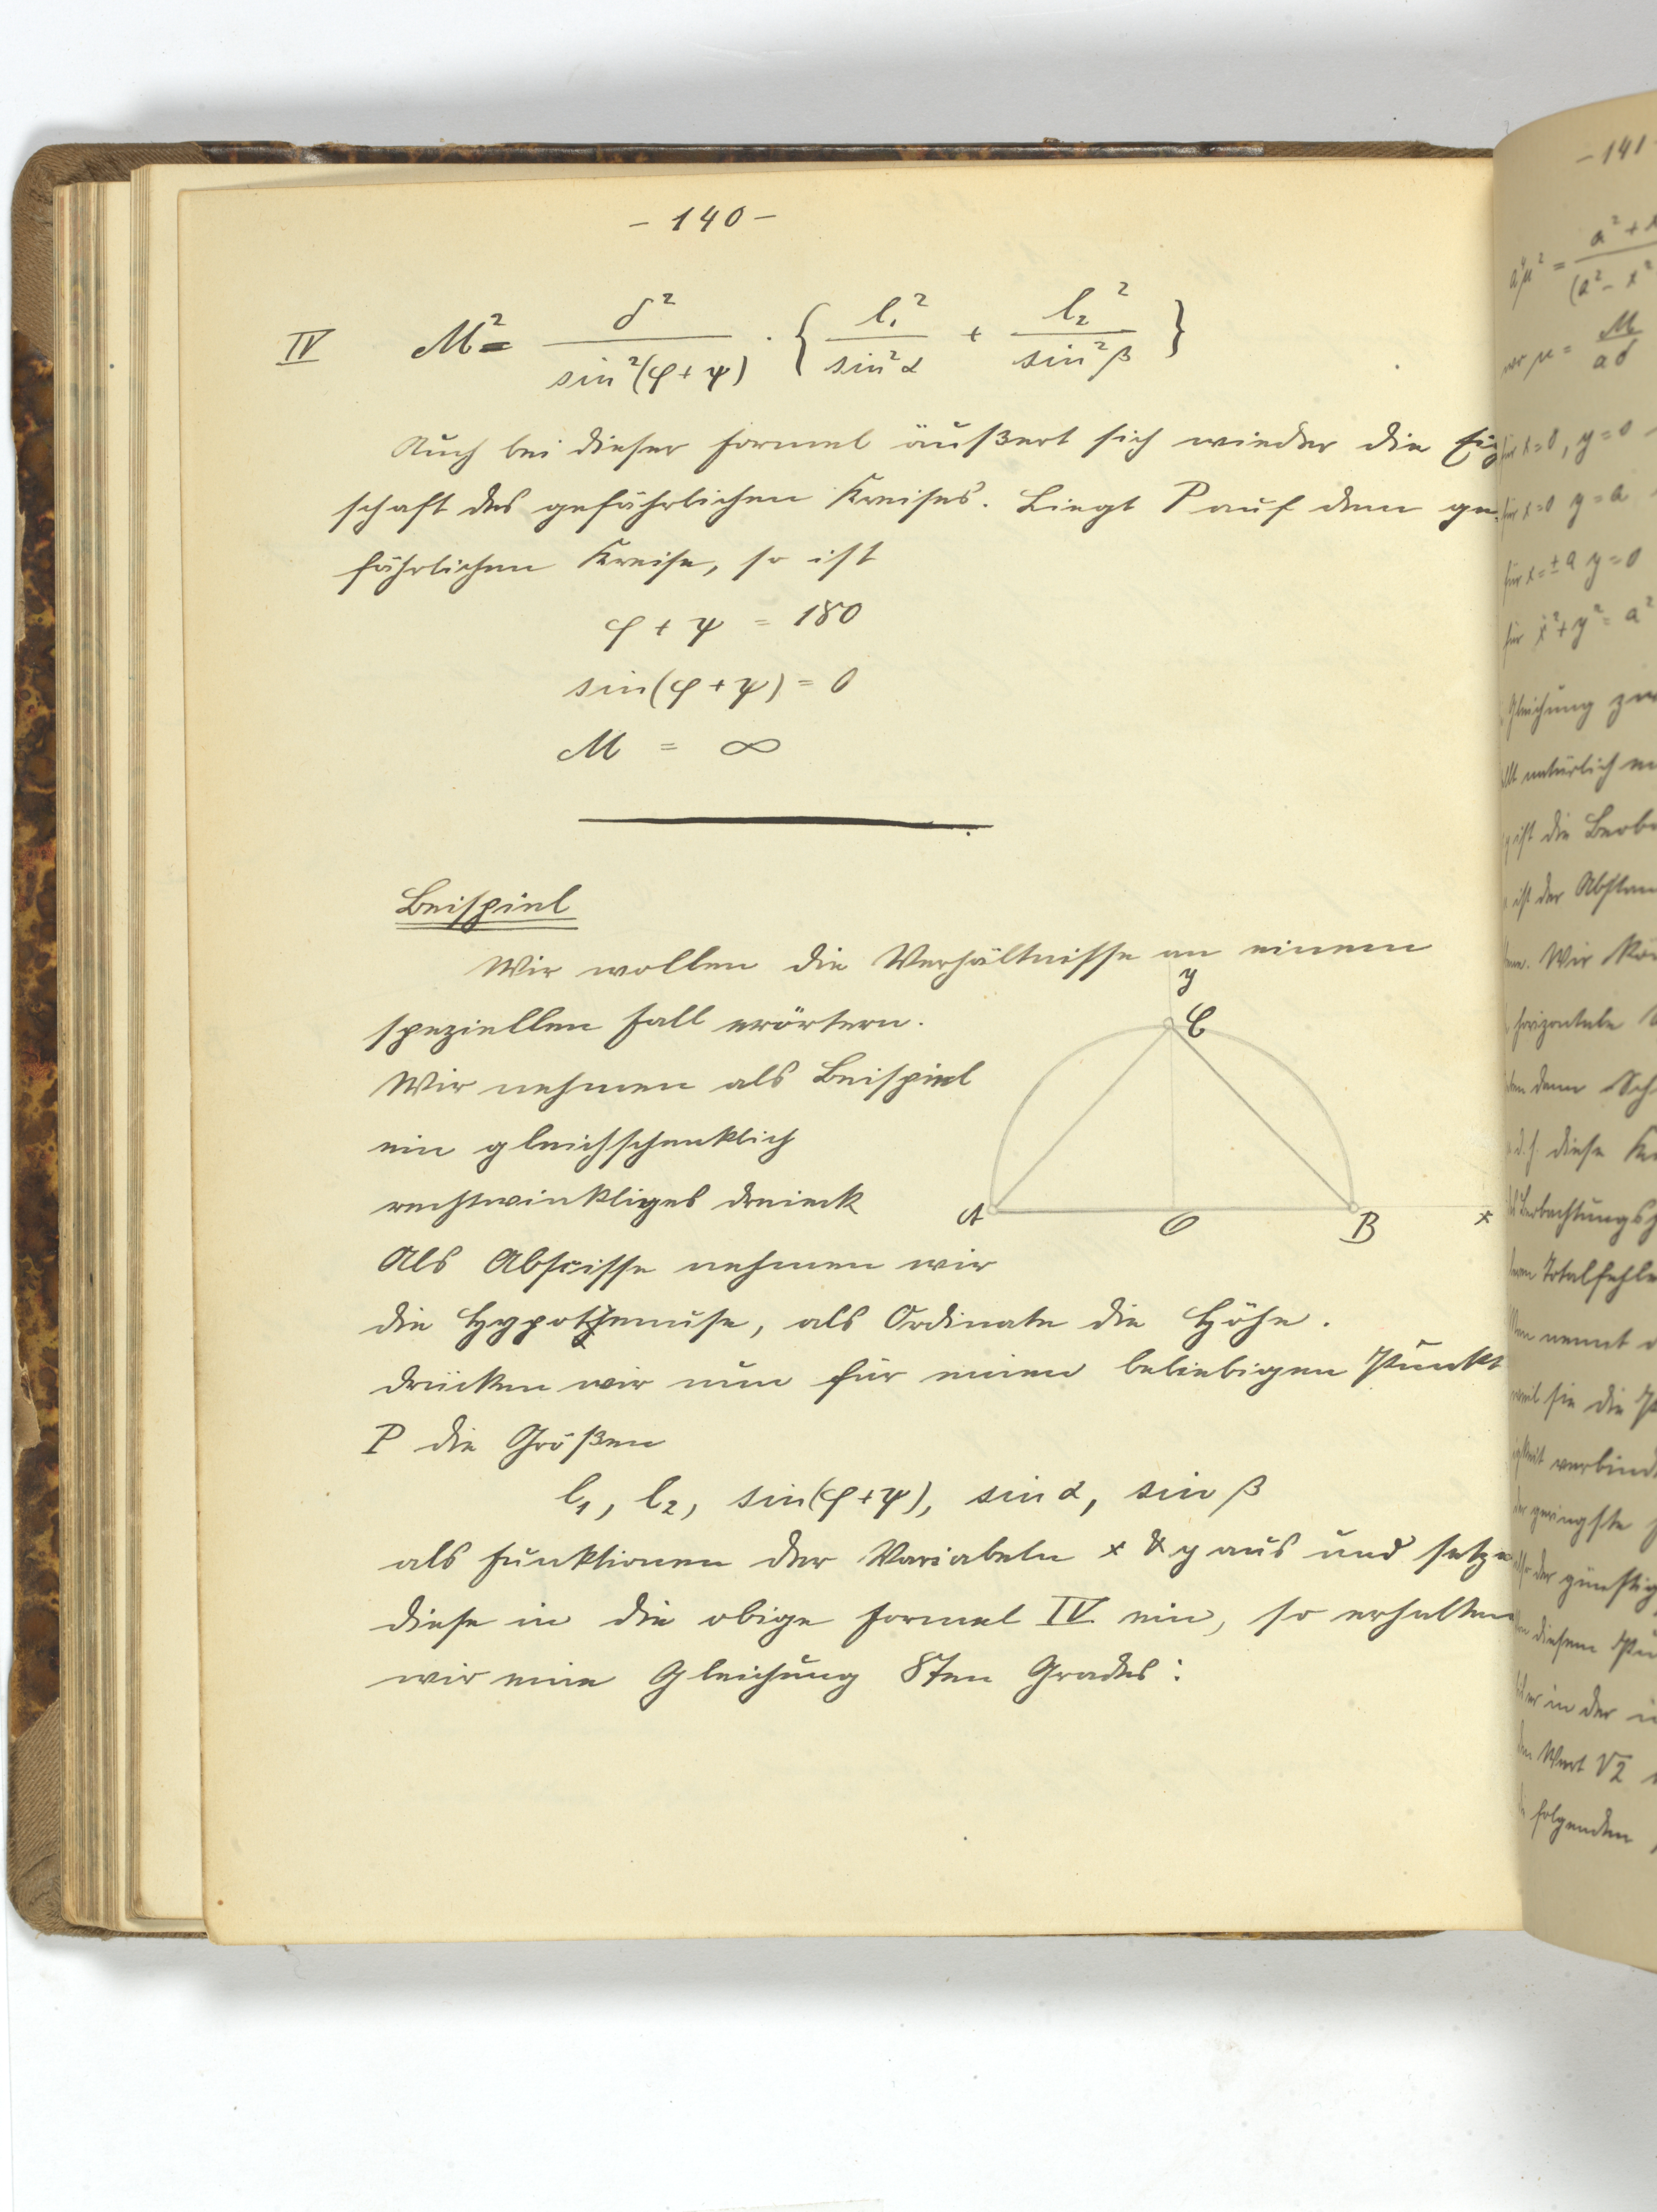 - 140 -
IV M² = δ² / sin²(φ+ψ) · { l₁² / sin²α + l₂² / sin²β }
Auch bei dieser Formel äußert sich wieder die Eig
schaft des gefährlichen Kreises. Liegt P auf dem ge-
fährlichen Kreise, so ist
φ + ψ = 180
sin(φ+ψ) = 0
M = ∞
Beispiel
Wir wollen die Verhältnisse an einem
speziellen Fall erörtern.
Wir nehmen als Beispiel
ein gleichschenklich
rechtwinkliges Dreieck
y
C
A O B x
Als Abscisse nehmen wir
die Hypothenuse, als Ordinate die Höhe.
Drücken wir nun für einen beliebigen Punkt
P die Größen
l₁, l₂, sin(φ+ψ), sin α, sin β
als Funktionen der Variabeln x & y aus und setze
diese in die obige Formel IV. ein, so erhalten
wir eine Gleichung 8ten Grades:
- 141 -
a⁴μ² = a² +
(a² - x²
μ = M / aδ
für x=0, y=0
für x=0 y=a
für x=±a y=0
für x²+y²=a²
Gleichung
natürlich
ist die
ist der
Wir
horizontale
denn
d.h. diese
Beobachtungs
Totalfehle
nennt
weil sie die
verbind
geringste
der günstig
diesem
in der
Wert √2
folgenden